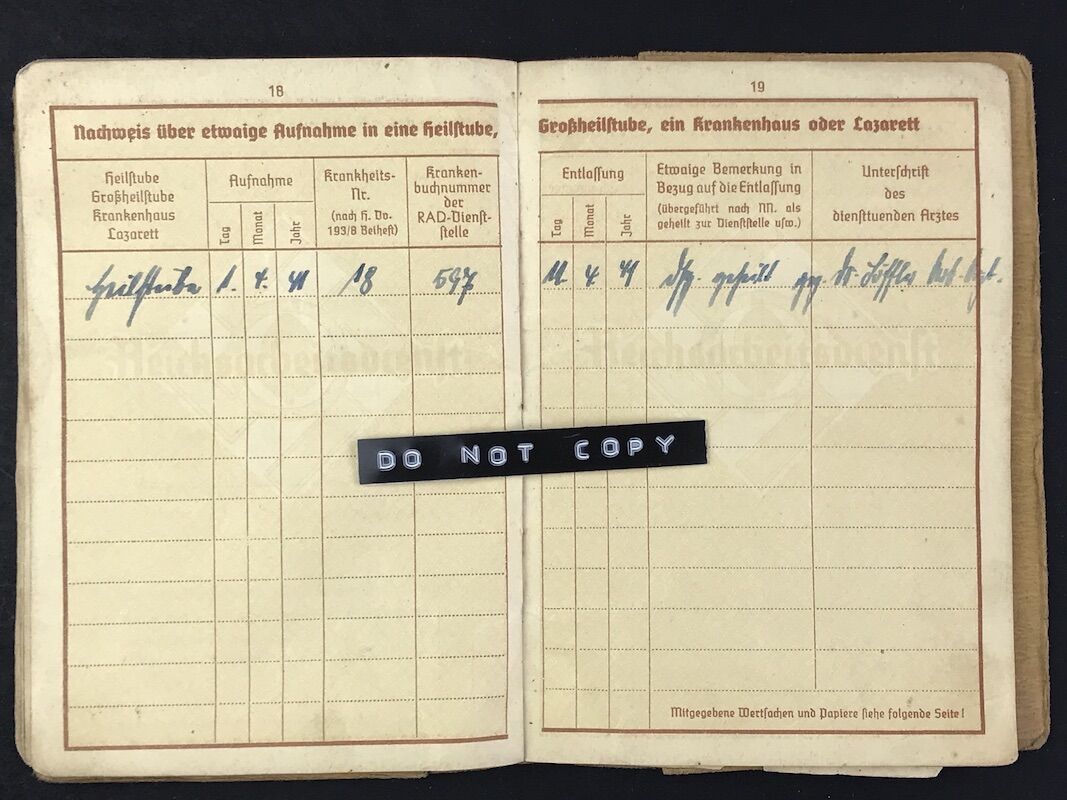 18
Nachweis über etwaige Aufnahme in eine Heilstube,
Heilstube
Großheilstube
Krankenhaus
Lazarett
Aufnahme
Tag
Monat
Jahr
Krankheits-
Nr.
(nach H. Dv.
193/8 Beiheft)
Kranken-
buchnummer
der
RAD-Dienst-
stelle
Heilstube 1. 4. 41 18 597
19
Großheilstube, ein Krankenhaus oder Lazarett
Entlassung
Tag
Monat
Jahr
Etwaige Bemerkung in
Bezug auf die Entlassung
(übergeführt nach NN. als
geheilt zur Dienststelle usw.)
Unterschrift
des
diensttuenden Arztes
11. 4. 41 geheilt Dr. Löffler
DO NOT COPY
Mitgegebene Wertsachen und Papiere siehe folgende Seite!